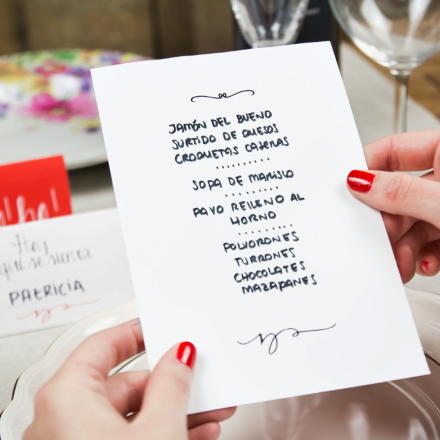 JAMÓN DEL BUENO
SURTIDO DE QUESOS
CROQUETAS CASERAS
SOPA DE MARISCO
PAVO RELLENO AL
HORNO
POLVORONES
TURRONES
CHOCOLATES
MAZAPANES
Hoy
aquí se sienta
PATRICIA